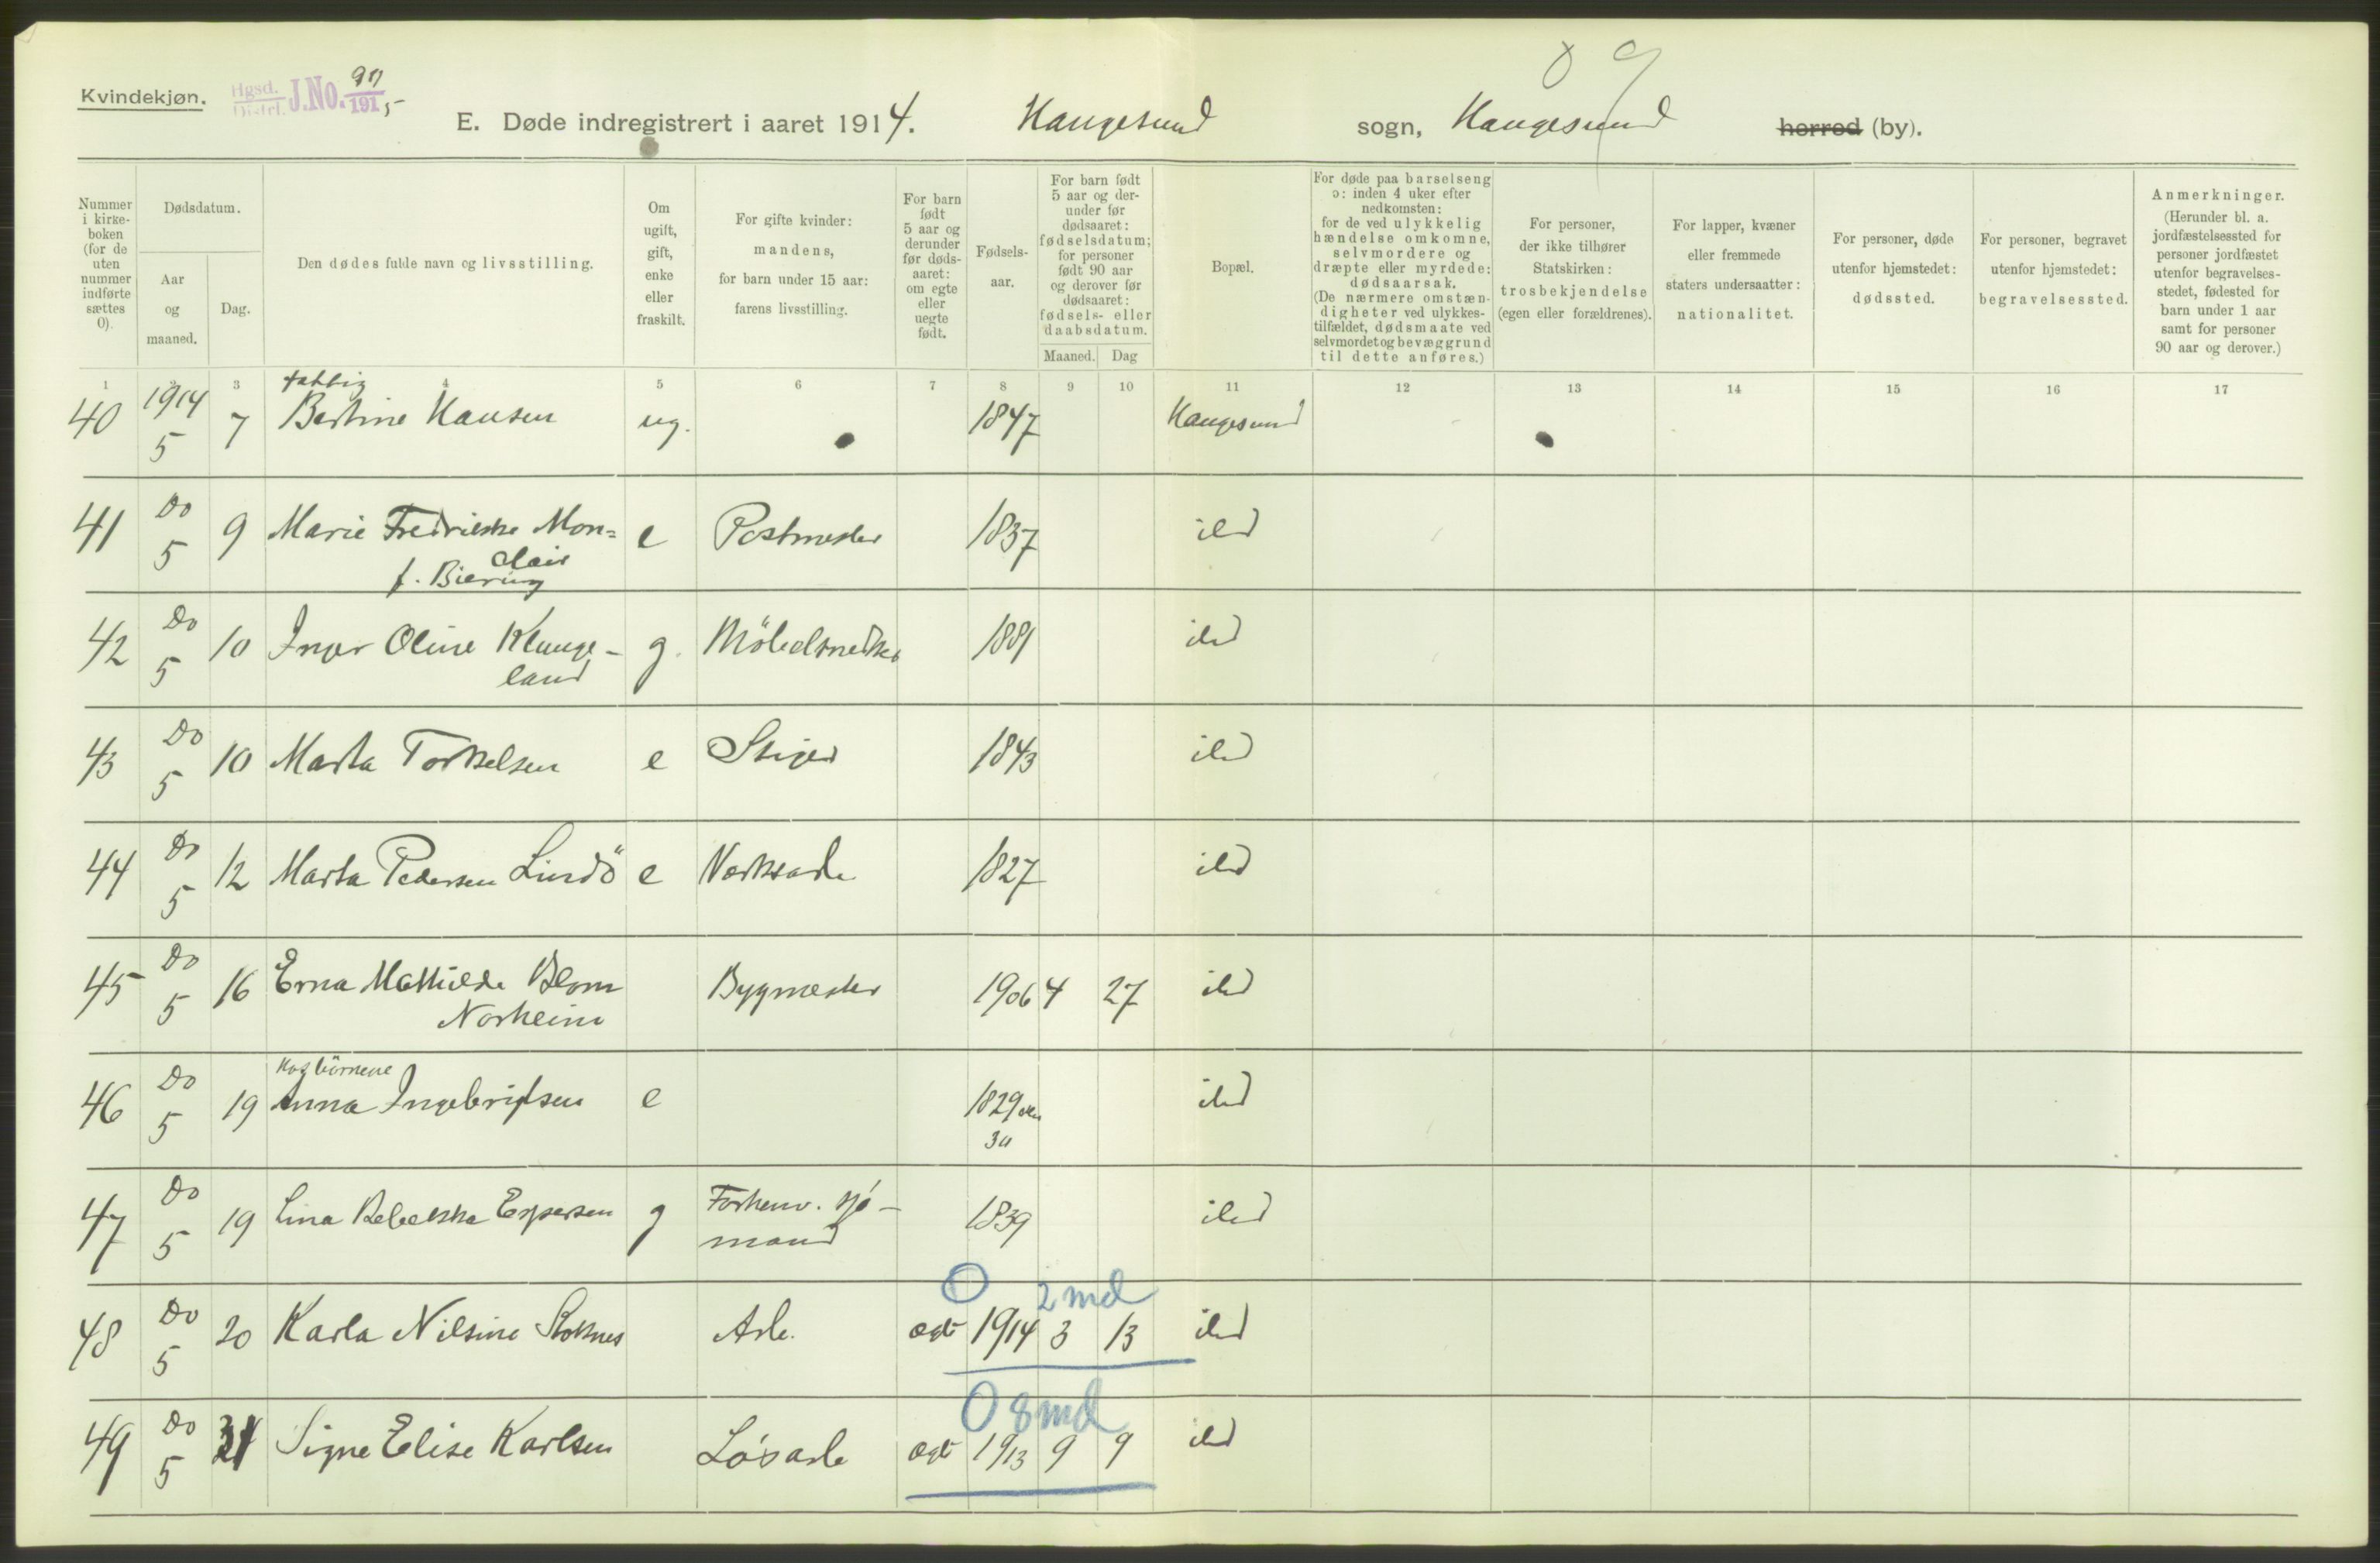 Kvindekjøn.
Hgsd.
Distrl. J.No. 191 5
E. Døde indregistrert i aaret 1914. Haugesund sogn, Haugesund herred (by).
89
Nummer i kirke-boken (for de uten nummer indførte sættes 0).
Dødsdatum.
Aar og maaned.
Dag.
Den dødes fulde navn og livsstilling.
Om ugift, gift, enke eller fraskilt.
For gifte kvinder: mandens, for barn under 15 aar: farens livsstilling.
For barn født 5 aar og derunder før døds-aaret: om egte eller uegte født.
Fødsels-aar.
For barn født 5 aar og der-under før dødsaaret: fødselsdatum; for personer født 90 aar og derover før dødsaaret: fødsels- eller daabsdatum.
Maaned. Dag
Bopæl.
For døde paa barselseng ɔ: inden 4 uker efter nedkomsten: for de ved ulykkelig hændelse omkomne, selvmordere og dræpte eller myrdede: dødsaarsak. (De nærmere omstæn-digheter ved ulykkes-tilfældet, dødsmaate ved selvmordet og bevæggrund til dette anføres.)
For personer, der ikke tilhører Statskirken: trosbekjendelse (egen eller forældrenes).
For lapper, kvæner eller fremmede staters undersaatter: nationalitet.
For personer, døde utenfor hjemstedet: dødssted.
For personer, begravet utenfor hjemstedet: begravelsessted.
Anmerkninger. (Herunder bl. a. jordfæstelsessted for personer jordfæstet utenfor begravelses-stedet, fødested for barn under 1 aar samt for personer 90 aar og derover.)
1 2 3 4 5 6 7 8 9 10 11 12 13 14 15 16 17
fattig
40 1914 5 7 Bertine Hansen ug. 1847 Haugesund
41 Do 5 9 Marie Fredrikke Mon=
clair
f. Biering e Postmester 1837 ibd
42 Do 5 10 Inger Oline Klunge-
land g. Møbelsnedker 1881 ibd
43 Do 5 10 Marta Torkelsen e Stiger 1843 ibd
44 Do 5 12 Marta Pedersen Lindö e Verksarb. 1827 ibd
45 Do 5 16 Erna Mathilde Blom
Norheim Bygmester 1906 4 27 ibd
Hos börnene
46 Do 5 19 Anna Ingebrigtsen e 1829 eller
30 ibd
47 Do 5 19 Lina Rebekka Espersen g Forhenv. sjö-
mand 1839 ibd
0 2 md
48 Do 5 20 Karla Nilsine Stoknes Arb. egt 1914 3 13 ibd
0 8 md
49 Do 5 Signe Elise Karlsen Løsarb egt 1913 9 9 ibd